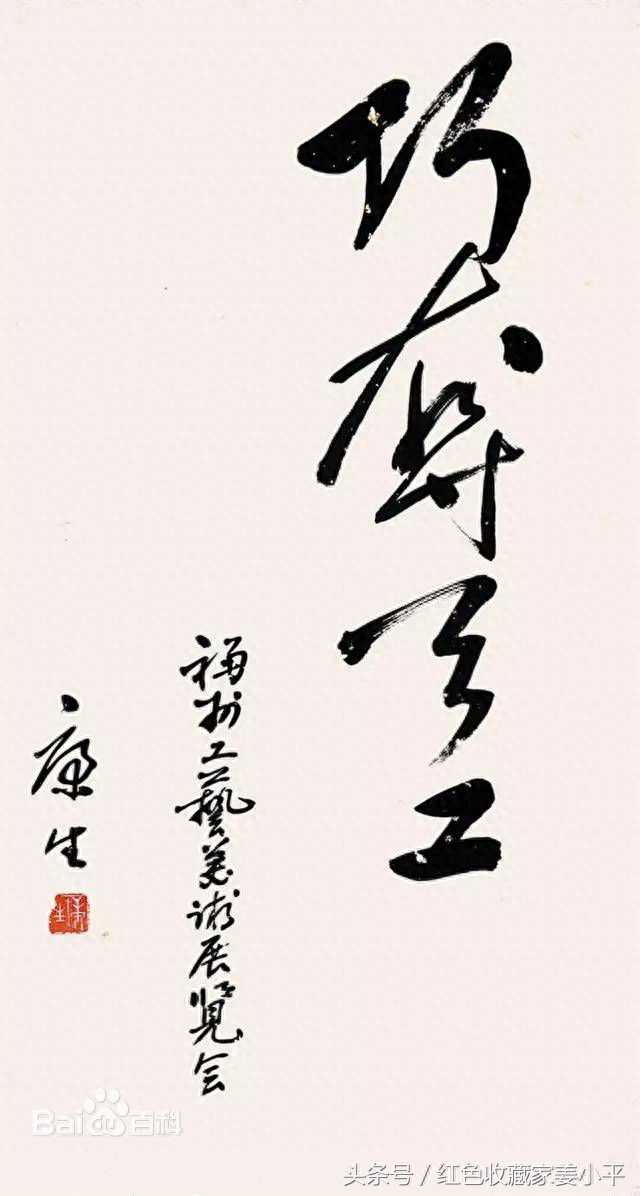 巧夺天工
福州工藝美術展覽会
康生
康生
Baidu百科
头条号／红色收藏家姜小平